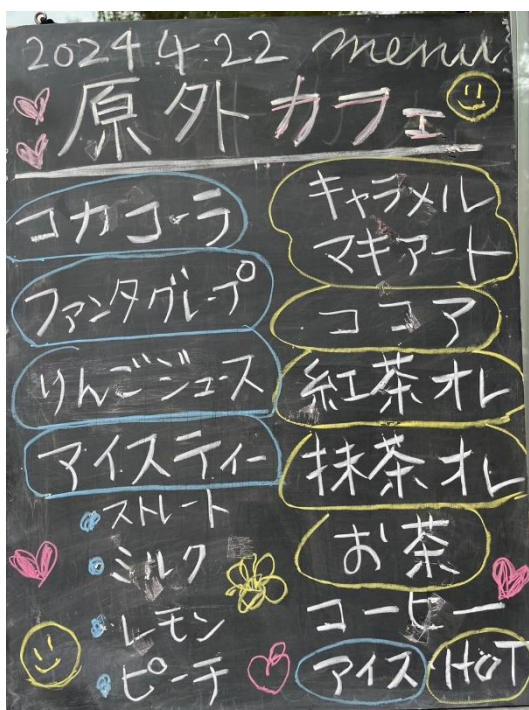 2024.4.22 menu
原外カフェ
コカコーラ
ファンタグレープ
りんごジュース
アイスティー
ストレート
ミルク
レモン
ピーチ
キャラメル
マキアート
ココア
紅茶オレ
抹茶オレ
お茶
コーヒー
アイス HOT